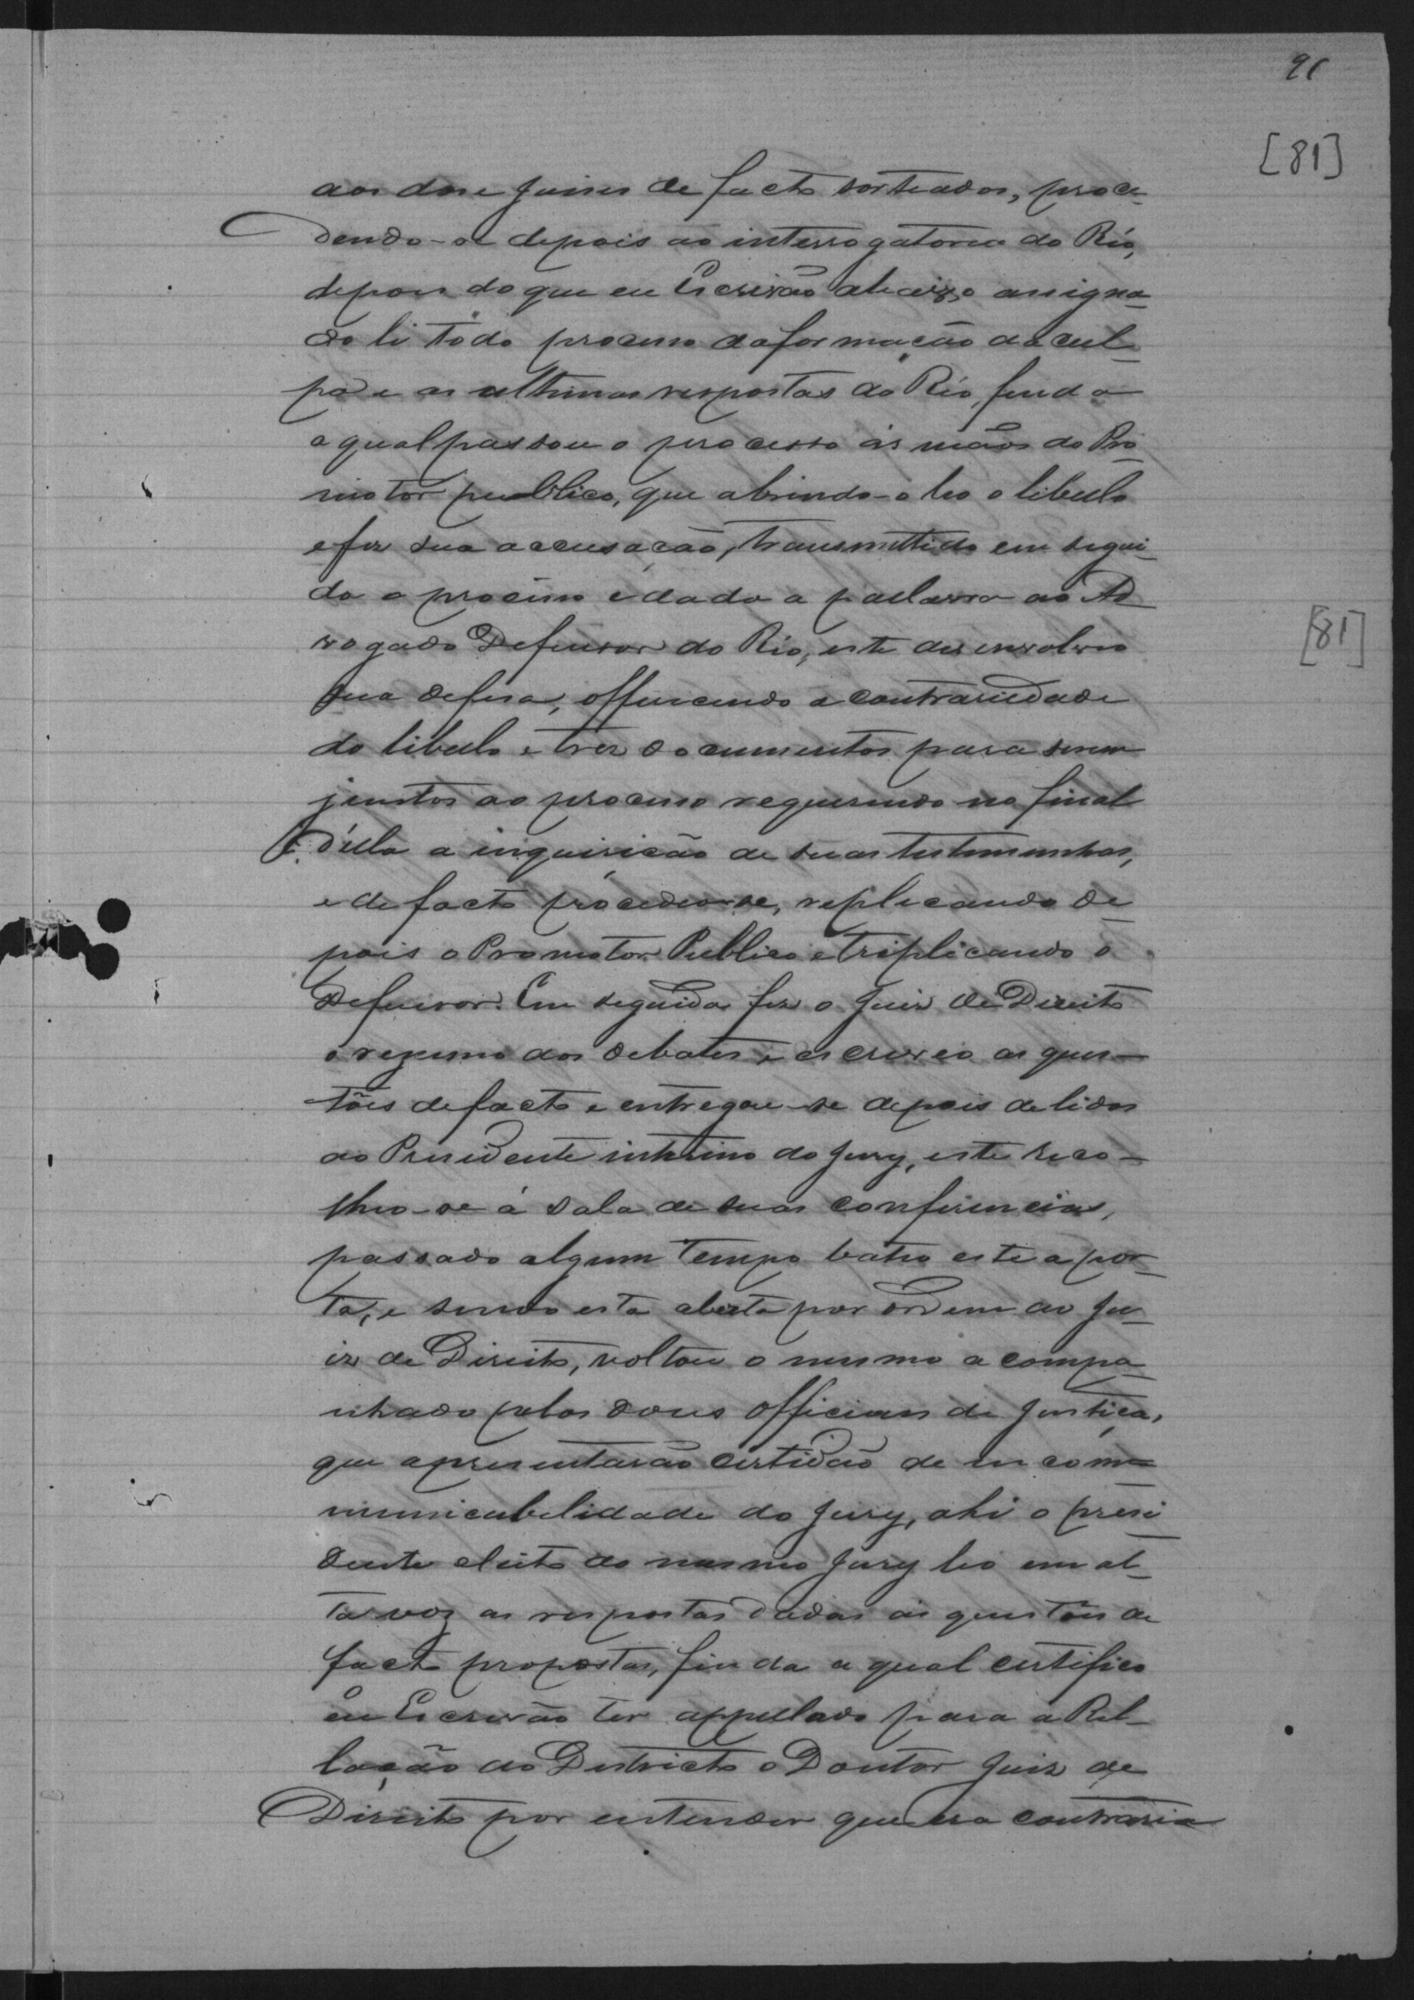 91
[81]
aos doze Juizes de facto sorteados, proce-
dendo-se depois ao interrogatorio do Réo,
depois do que eu Escrivão abaixo assigna-
do li todo processo da formação da cul-
pa e as ultimas respostas do Réo, findo
o qual passou o processo ás mãos do Pro
motor publico, que abrindo-o leo o libello
e fez sua accusação, transmittido em segui-
da o processo e dada a palavra ao Ad
vogado Defensor do Réo, este desenvolveo
[81]
sua defesa, offerecendo a contrariedade
do libello e trez documentos para serem
juntos ao processo requerendo no final
d'ella a inquirição de suas testemunhas,
e de facto procedeo-se, replicando de
pois o Promotor Publico e triplicando o
Defensor. Em seguida fez o Juiz de Direito
o resumo dos debates, e escreveo as ques-
tões de facto e entregou-se depois de lidos
ao Presidente interino do Jury, este reco-
lheo-se á sala de suas conferencias,
passado algum tempo bateo este a por-
ta, e sendo esta aberta por ordem do Ju-
iz de Direito, voltou o mesmo acompa-
nhado pelos dous officiaes de Justiça,
que apresentarão certidão de incom-
municabilidade do Jury, ahi o presi
dente eleito do mesmo Jury leo em al-
ta voz as respostas dadas ás questões de
facto propostas, finda a qual certifico
eu Escrivão ter appellado para a Rel-
lação do Districto o Doutor Juiz de
Direito por entender que era contraria